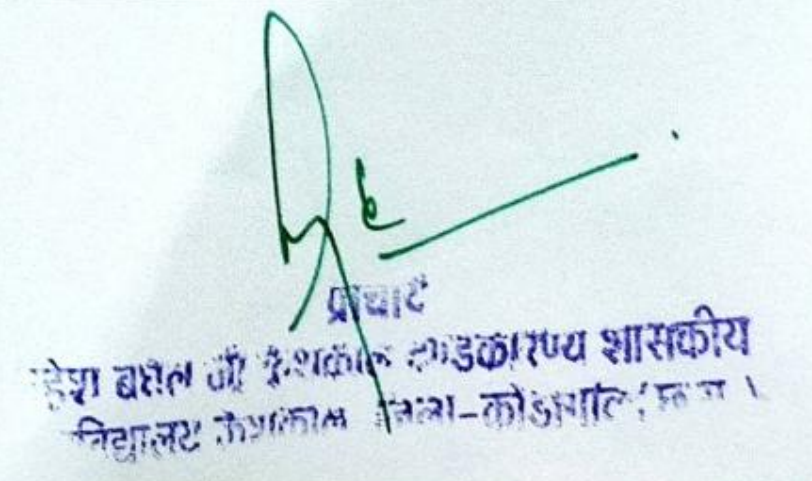 प्राचार्य
बघेल जी केशकाल दण्डकारण्य शासकीय
विद्यालय केशकाल जिला-कोंडागांव